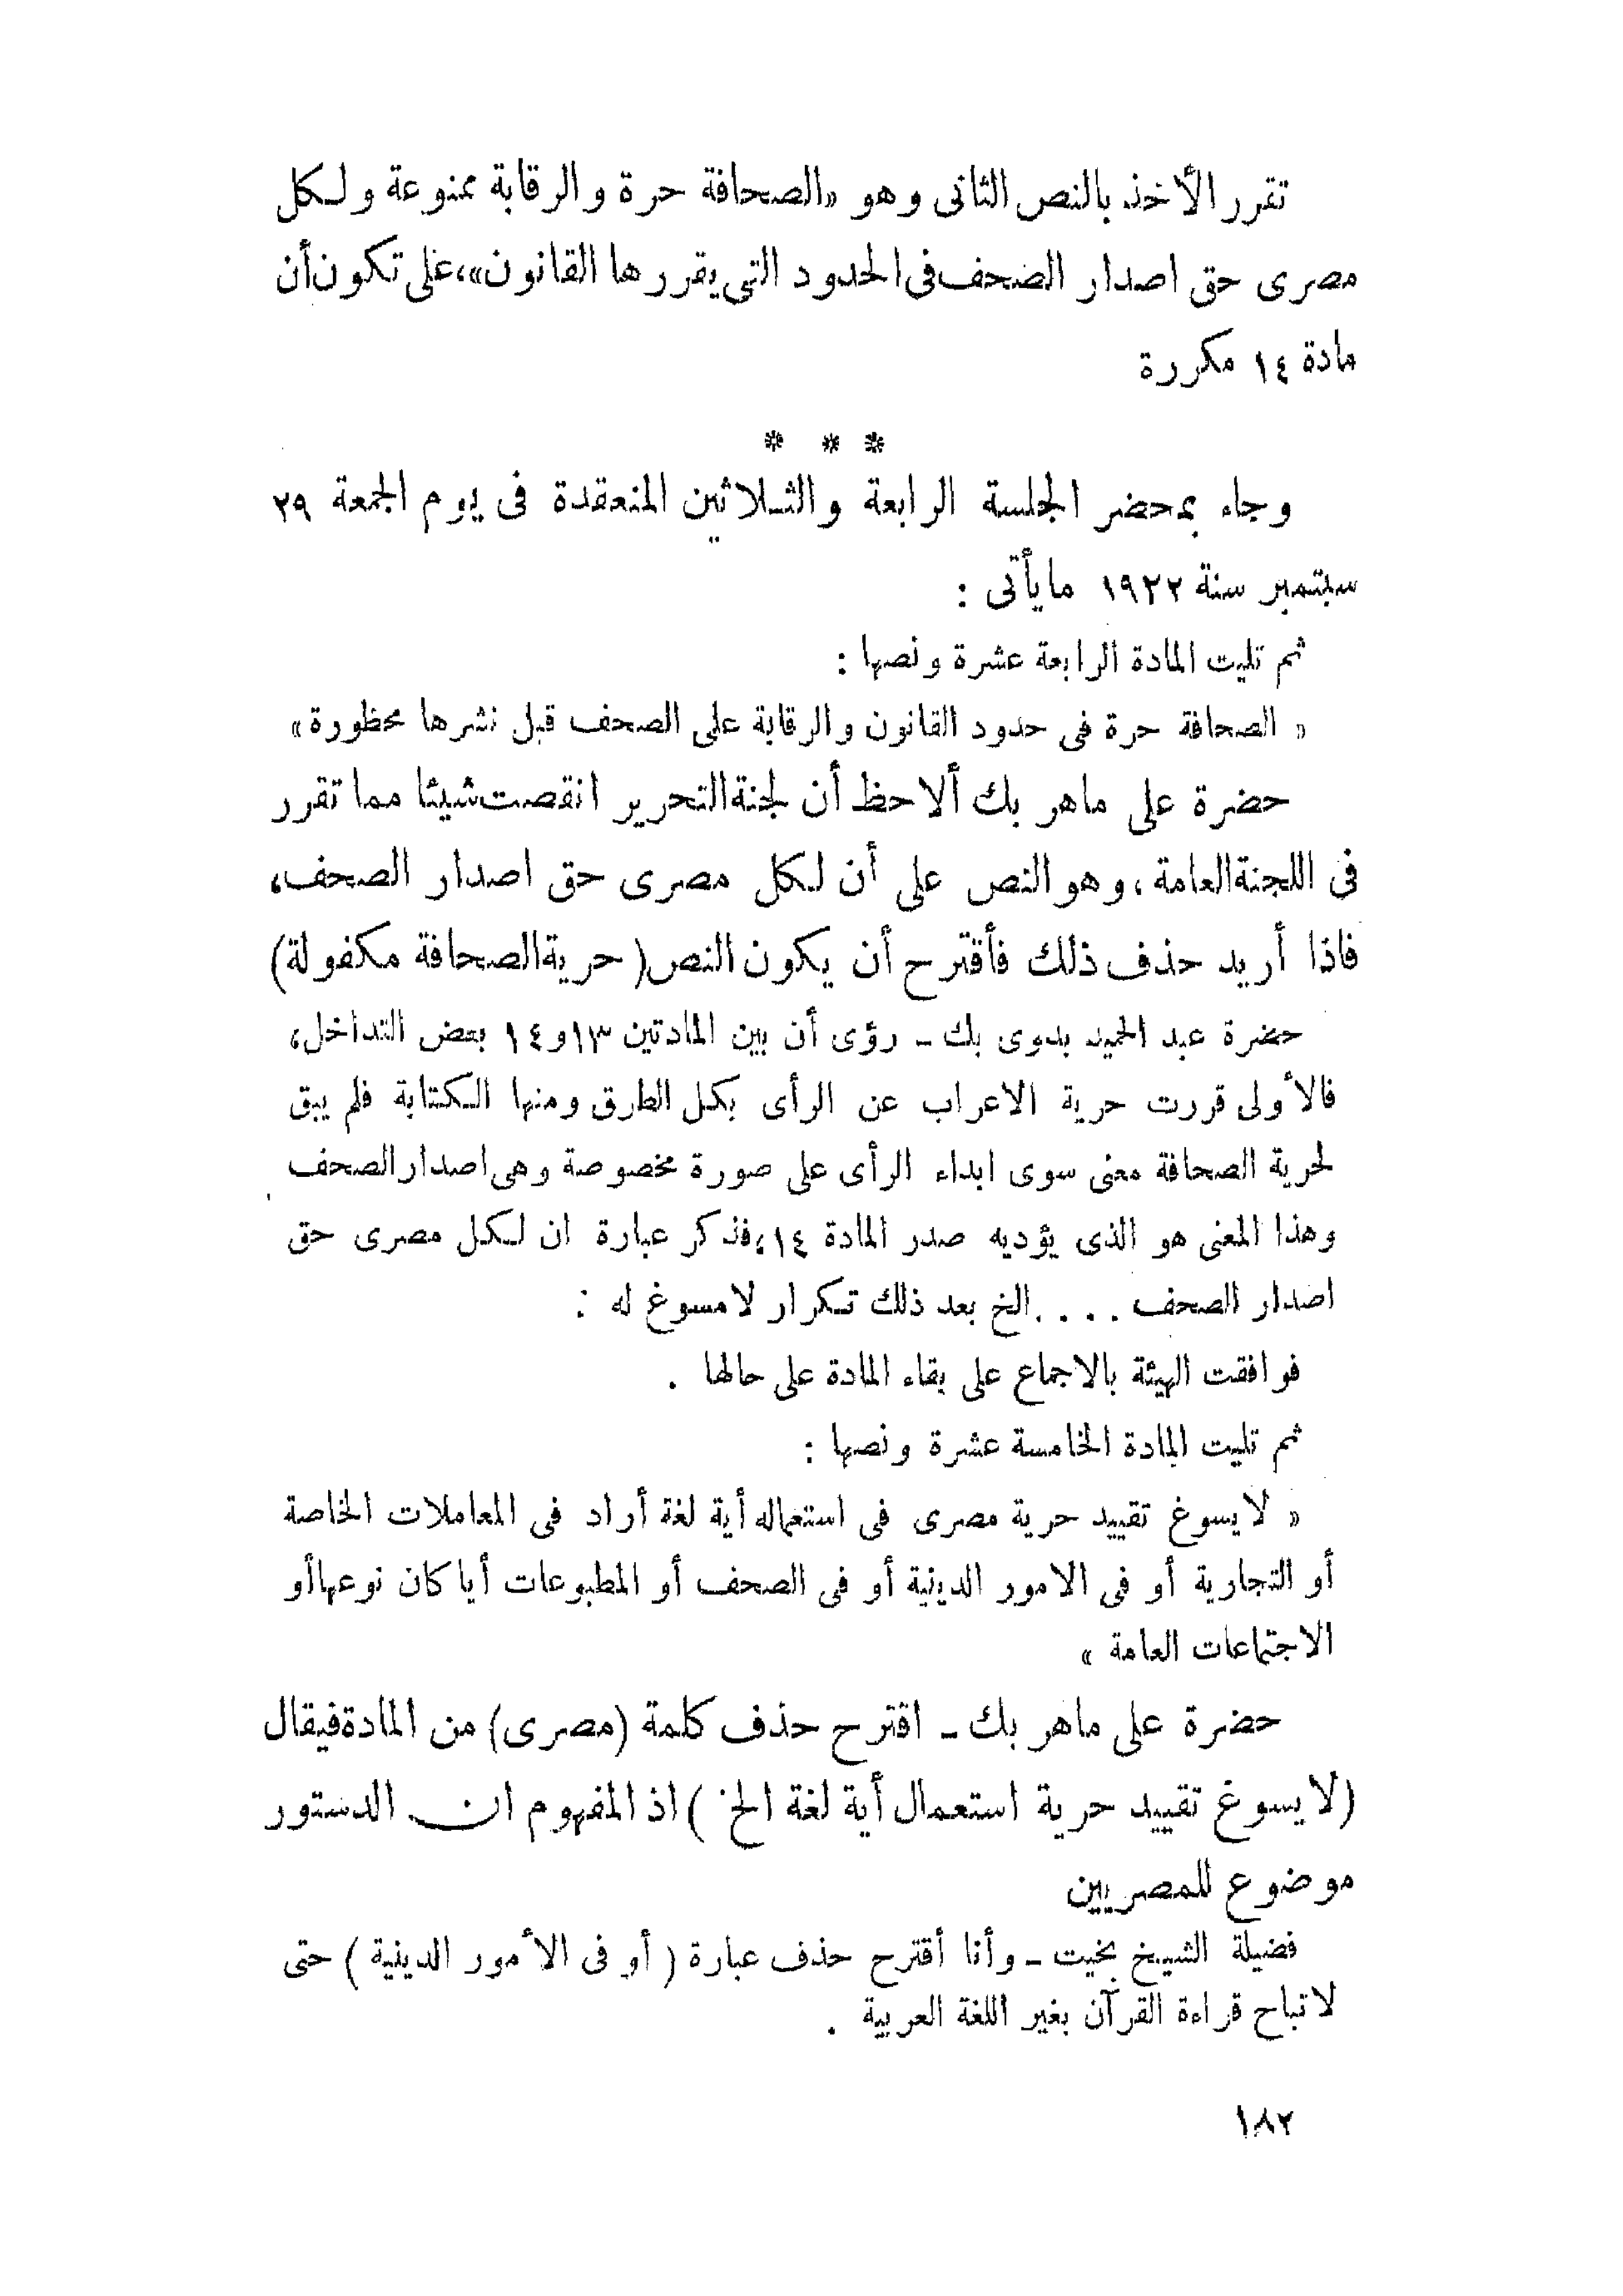 تقرر الأخذ بالنص الثانى وهو «الصحافة حرة والرقابة ممنوعة ولكل
مصرى حق اصدار الصحف فى الحدود التى يقررها القانون»، على تكون أن
مادة ١٤ مكررة
* * *
وجاء بمحضر الجلسة الرابعة والثلاثين المنعقدة فى يوم الجمعة ٢٩
سبتمبر سنة ١٩٢٢ ما يأتى :
ثم تليت المادة الرابعة عشرة ونصها :
« الصحافة حرة فى حدود القانون والرقابة على الصحف قبل نشرها محظورة »
حضرة على ماهر بك ألاحظ أن لجنة التحرير انقصت شيئا مما تقرر
فى اللجنة العامة، وهو النص على أن لكل مصرى حق اصدار الصحف،
فاذا أريد حذف ذلك فأقترح أن يكون النص (حرية الصحافة مكفولة)
حضرة عبد الحميد بدوى بك ـ رؤى أن بين المادتين ١٣و١٤ بعض التداخل،
فالأولى قررت حرية الاعراب عن الرأى بكل الطرق ومنها الكتابة فلم يبق
لحرية الصحافة معنى سوى ابداء الرأى على صورة مخصوصة وهى اصدار الصحف
وهذا المعنى هو الذى يؤديه صدر المادة ١٤، فذكر عبارة ان لكل مصرى حق
اصدار الصحف .... الخ بعد ذلك تكرار لا مسوغ له :
فوافقت الهيئة بالاجماع على بقاء المادة على حالها .
ثم تليت المادة الخامسة عشرة ونصها :
« لا يسوغ تقييد حرية مصرى فى استعماله أية لغة أراد فى المعاملات الخاصة
أو التجارية أو فى الامور الدينية أو فى الصحف أو المطبوعات أيا كان نوعها أو
الاجتماعات العامة »
حضرة على ماهر بك ـ اقترح حذف كلمة (مصرى) من المادة فيقال
(لا يسوغ تقييد حرية استعمال أية لغة الخ ) اذ المفهوم ان الدستور
موضوع للمصريين
فضيلة الشيخ بخيت ـ وأنا أقترح حذف عبارة ( أو فى الأمور الدينية ) حتى
لا تباح قراءة القرآن بغير اللغة العربية .
١٨٢